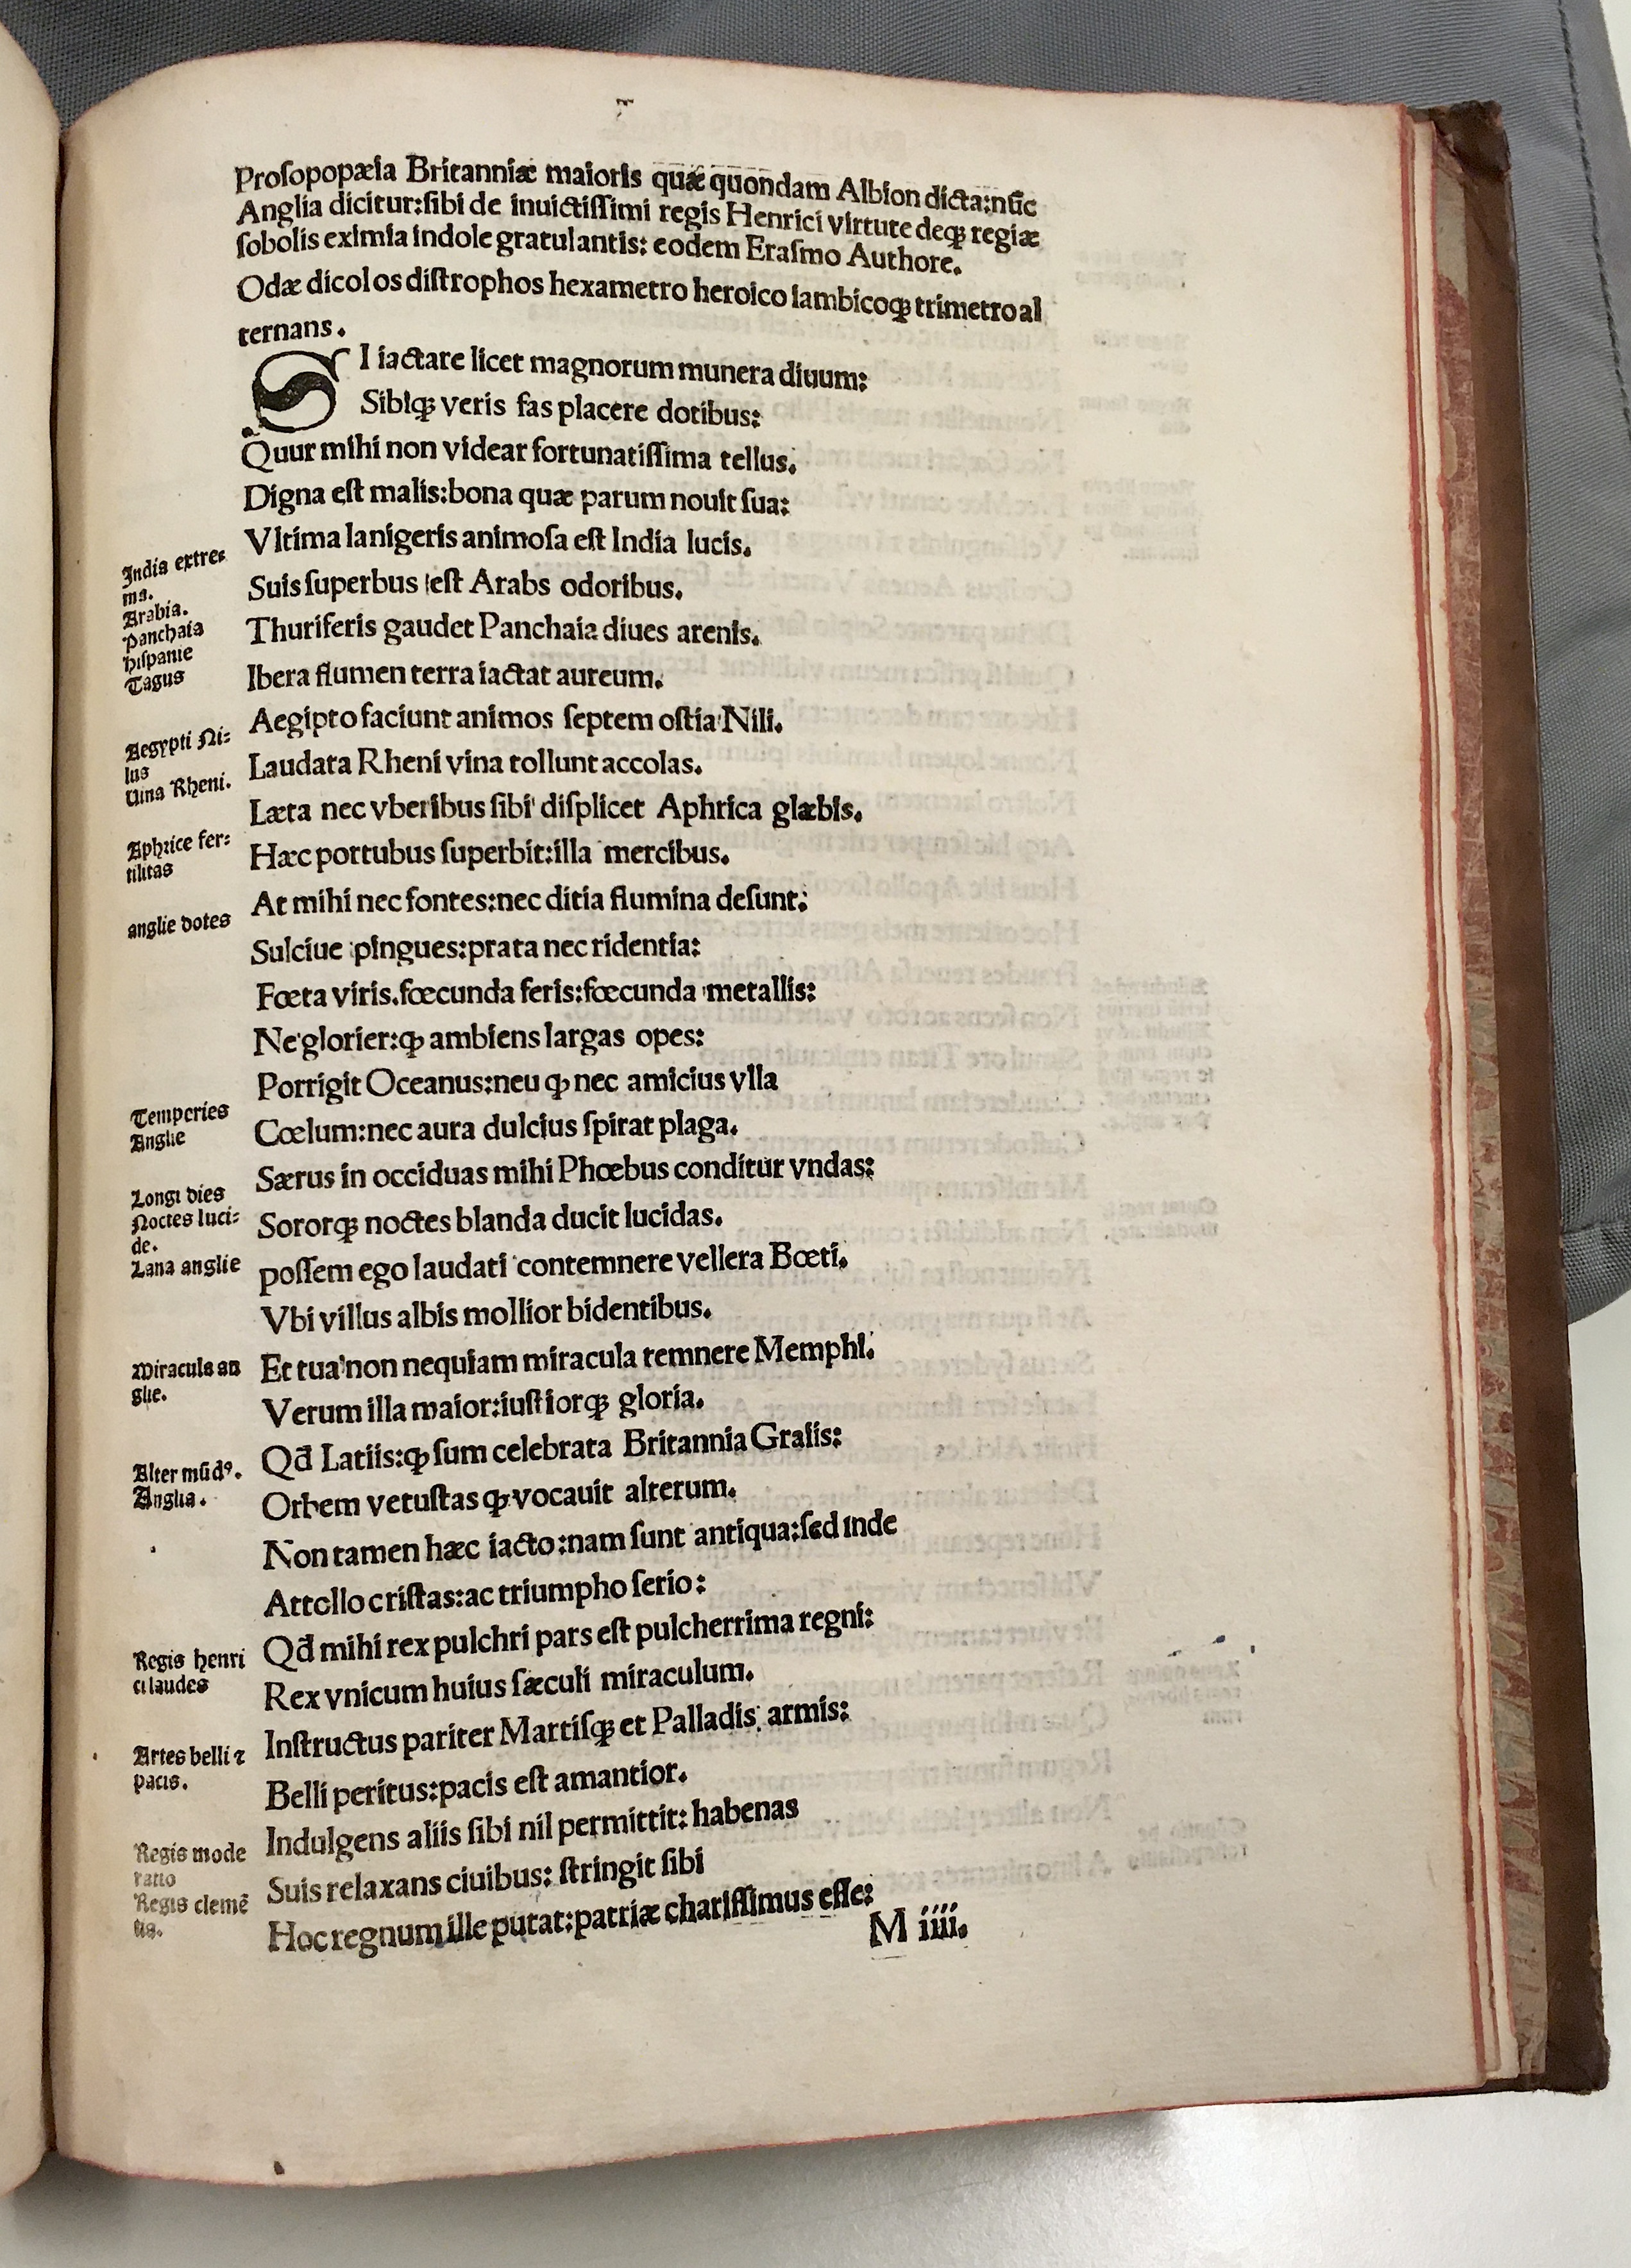 Proſopopæia Britanniæ maioris quæ quondam Albion dicta:nūc
Anglia dicitur:ſibi de inuictiſſimi regis Henrici virtute deqꝫ regiæ
ſobolis eximia indole gratulantis: eodem Eraſmo Authore.
Odæ dicolos diſtrophos hexametro heroico iambicoqꝫ trimetro al
ternans.
SI iactare licet magnorum munera diuum:
Sibiqꝫ veris fas placere dotibus:
Quur mihi non videar fortunatiſſima tellus.
Digna eſt malis:bona quæ parum nouit ſua:
India extre⸗
ma.
Vltima lanigeris animoſa eſt India lucis.
Arabia.
Suis ſuperbus eſt Arabs odoribus.
Panchaia
Thuriferis gaudet Panchaia diues arenis.
hiſpanie
Tagus
Ibera flumen terra iactat aureum.
Aegypti Ni⸗
lus
Aegipto faciunt animos ſeptem oſtia Nili.
Vina Rheni.
Laudata Rheni vina tollunt accolas.
Læta nec vberibus ſibi diſplicet Aphrica glæbis.
Aphrice fer⸗
tilitas
Hæc portubus ſuperbit:illa mercibus.
anglie dotes
At mihi nec fontes:nec ditia flumina deſunt:
Sulciue pingues:prata nec ridentia:
Fœta viris.fœcunda feris:fœcunda metallis:
Ne glorier:ꝙ ambiens largas opes:
Porrigit Oceanus:neu ꝙ nec amicius vlla
Temperies
Anglie
Cœlum:nec aura dulcius ſpirat plaga.
Særus in occiduas mihi Phœbus conditur vndas:
Longi dies
Noctes luci⸗
de.
Sororqꝫ noctes blanda ducit lucidas.
Lana anglie
poſſem ego laudati contemnere vellera Bœti.
Vbi villus albis mollior bidentibus.
Miracula an
glie.
Et tua non nequiam miracula temnere Memphi.
Verum illa maior:iuſtiorqꝫ gloria.
Qđ Latiis:ꝙ ſum celebrata Britannia Graiis:
Alter mūdꝰ.
Anglia.
Orbem vetuſtas ꝙ vocauit alterum.
Non tamen hæc iacto:nam ſunt antiqua:ſed inde
Attollo criſtas:ac triumpho ſerio:
Regis henri
ci laudes
Qđ mihi rex pulchri pars eſt pulcherrima regni:
Rex vnicum huius ſæculi miraculum.
Artes belli ⁊
pacis.
Inſtructus pariter Martiſqꝫ et Palladis armis:
Belli peritus:pacis eſt amantior.
Regis mode
ratio
Indulgens aliis ſibi nil permittit: habenas
Suis relaxans ciuibus: ſtringit ſibi
Regis clemē
tia.
Hoc regnum ille putat:patriæ chariſſimus eſſe:
M iiii.